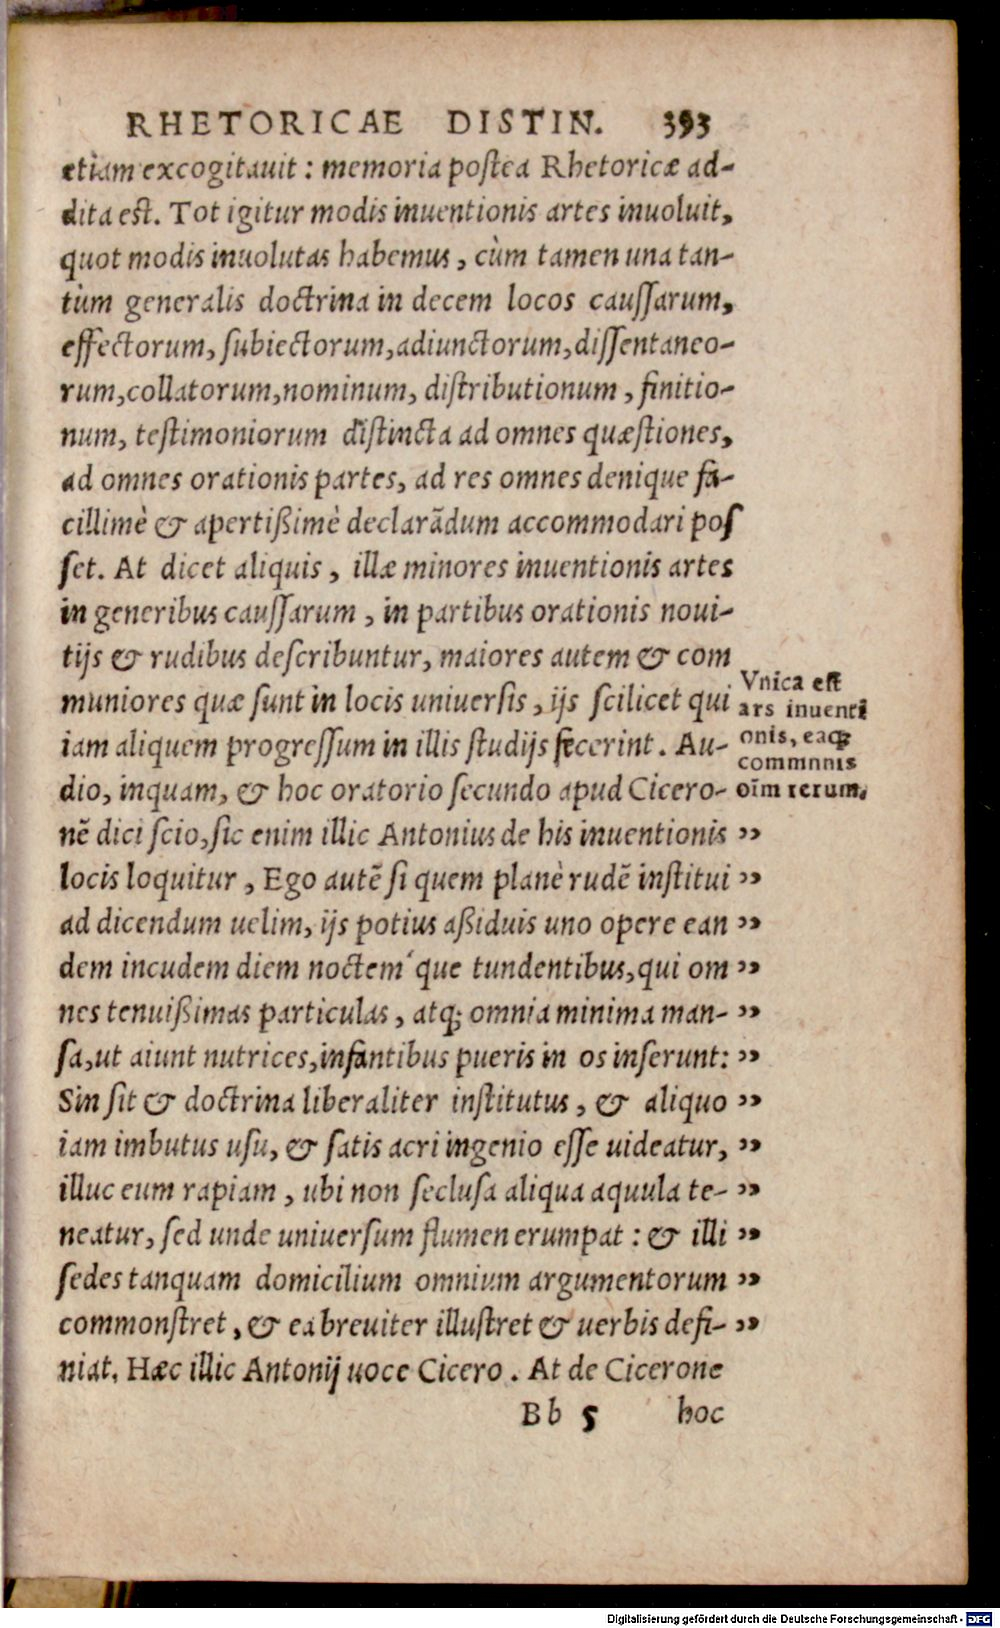 RHETORICAE DISTIN. 393
etiam excogitauit : memoria postea Rhetoricæ ad-
dita est. Tot igitur modis inuentionis artes inuoluit,
quot modis inuolutas habemus, cùm tamen una tan-
tùm generalis doctrina in decem locos caussarum,
effectorum, subiectorum, adiunctorum, dissentaneo-
rum, collatorum, nominum, distributionum, finitio-
num, testimoniorum distincta ad omnes quæstiones,
ad omnes orationis partes, ad res omnes denique fa-
cillimè & apertißimè declarãdum accommodari pos
set. At dicet aliquis, illæ minores inuentionis artes
in generibus caussarum, in partibus orationis noui-
tijs & rudibus describuntur, maiores autem & com
muniores quæ sunt in locis uniuersis, ijs scilicet qui
iam aliquem progressum in illis studijs fecerint. Au-
dio, inquam, & hoc oratorio secundo apud Cicero-
nẽ dici scio, sic enim illic Antonius de his inuentionis ”
locis loquitur, Ego autẽ si quem planè rudẽ institui ”
ad dicendum uelim, ijs potius aßiduis uno opere ean ”
dem incudem diem noctem´que tundentibus, qui om ”
nes tenuißimas particulas, atq; omnia minima man- ”
sa, ut aiunt nutrices, infantibus pueris in os inserunt: ”
Sin sit & doctrina liberaliter institutus, & aliquo ”
iam imbutus usu, & satis acri ingenio esse uideatur, ”
illuc eum rapiam, ubi non seclusa aliqua aquula te- ”
neatur, sed unde uniuersum flumen erumpat : & illi ”
sedes tanquam domicilium omnium argumentorum ”
commonstret, & ea breuiter illustret & uerbis defi- ”
niat. Hæc illic Antonij uoce Cicero. At de Cicerone
Bb 5 hoc
Vnica est
ars inuenti
onis, eaq;
communis
oĩm rerum.
Digitalisierung gefördert durch die Deutsche Forschungsgemeinschaft - DFG